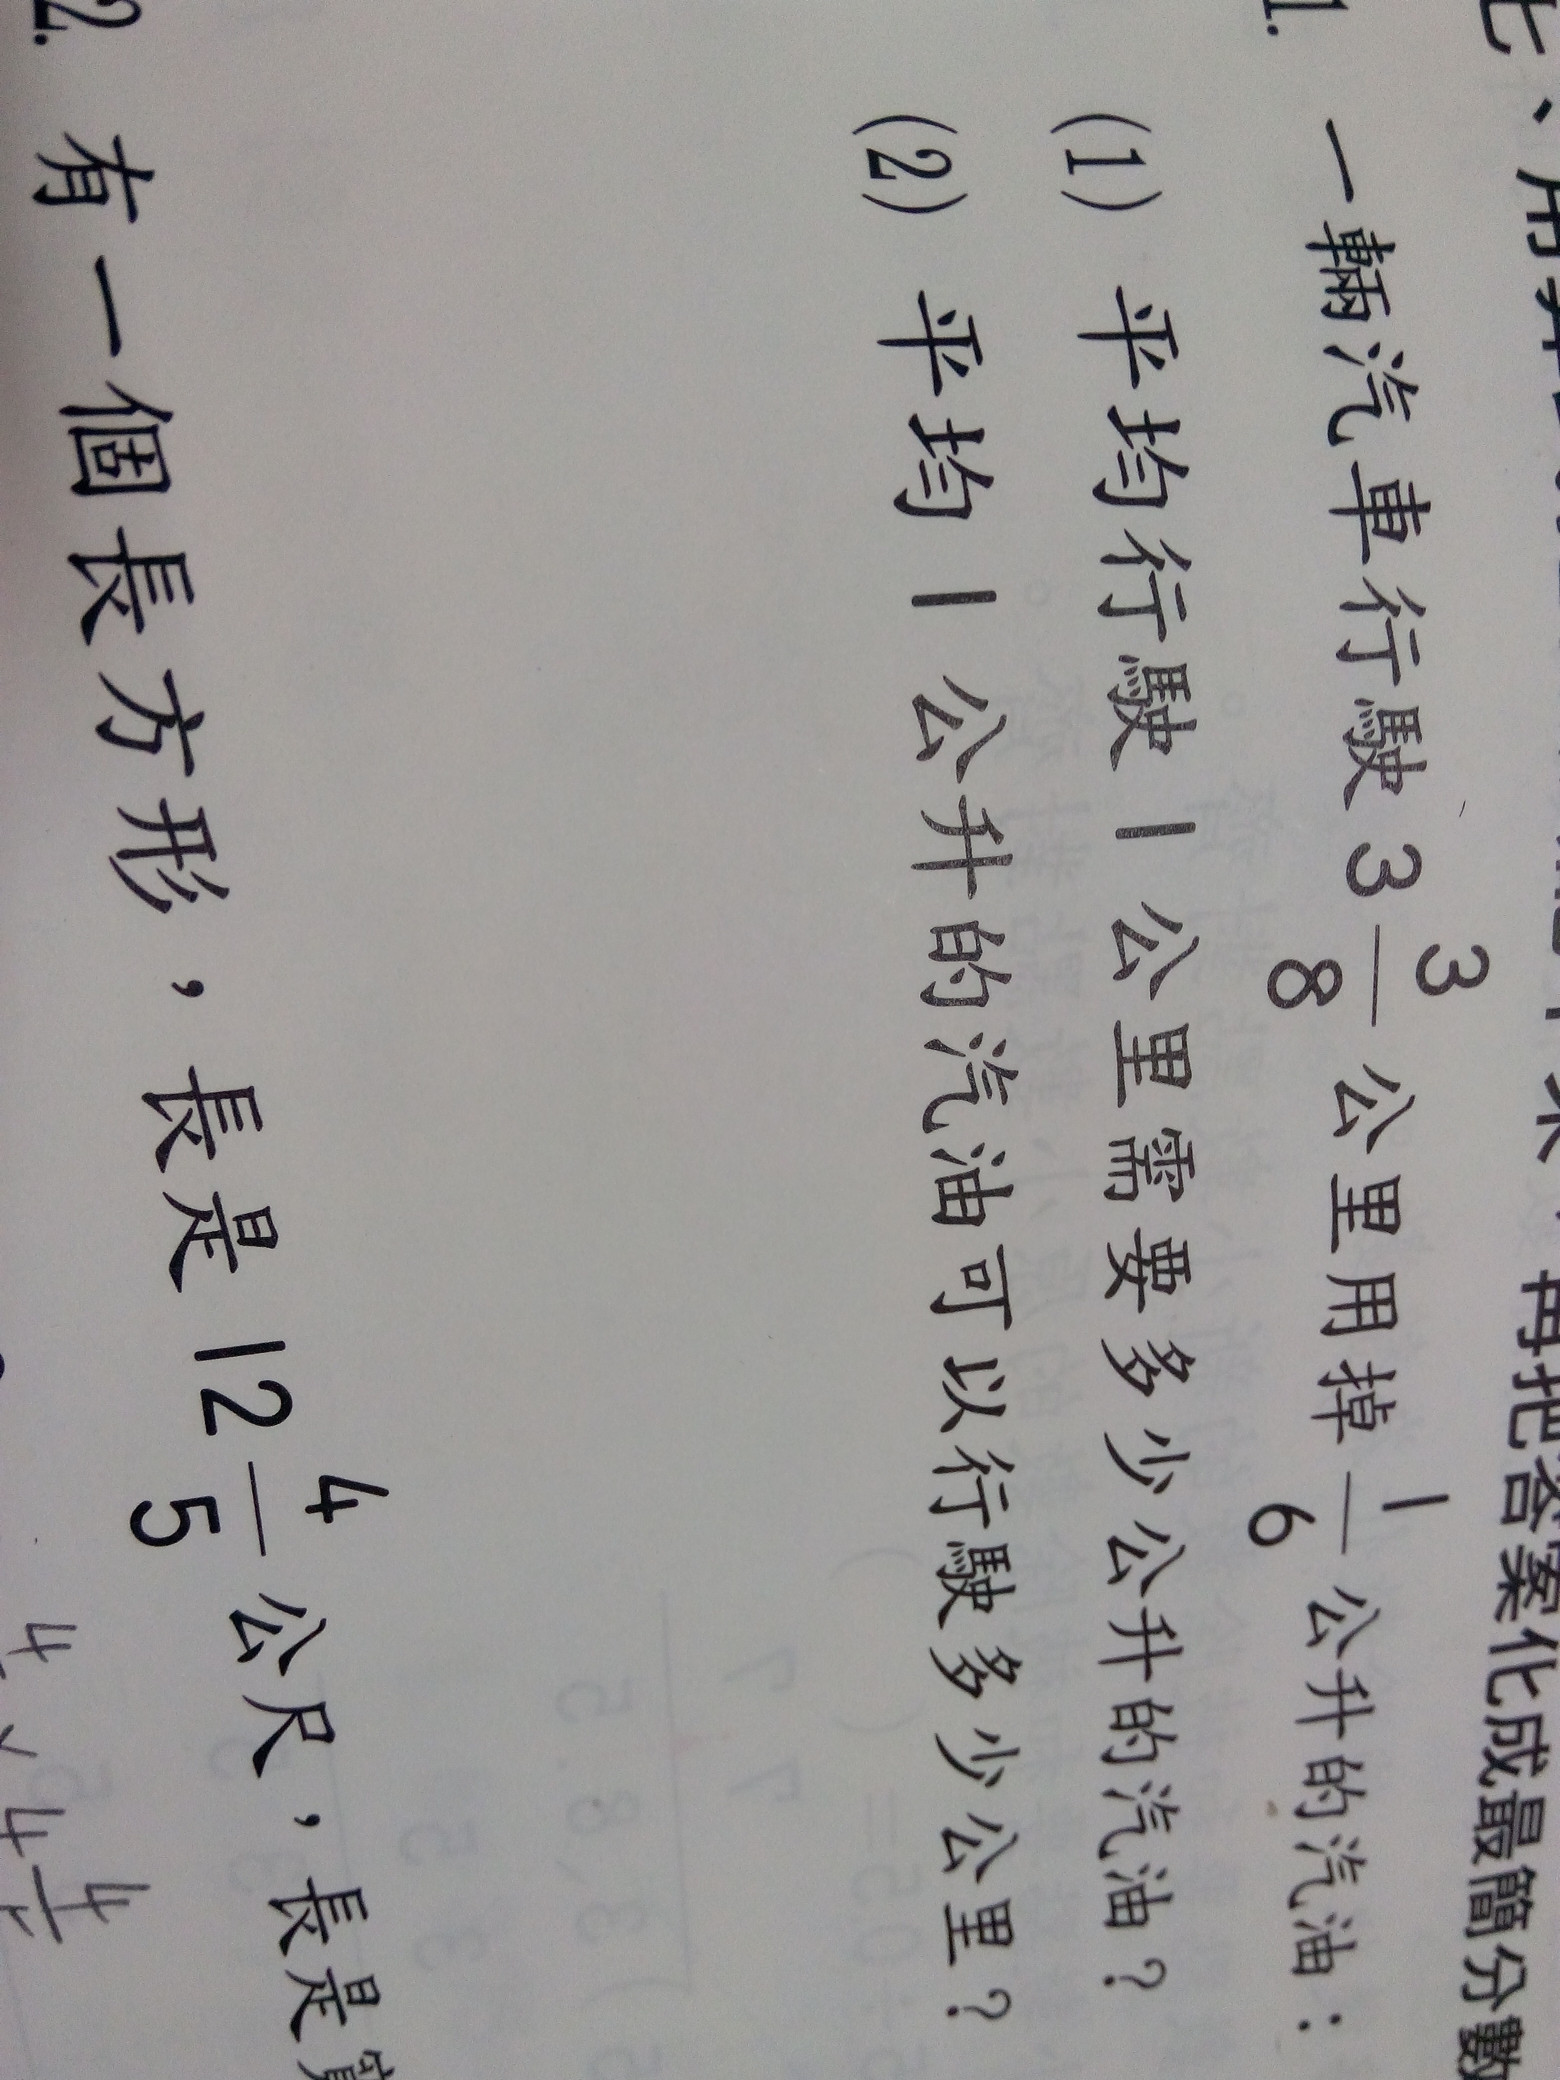 再把答案化成最簡分數
1. 一輛汽車行駛3 3/8 公里用掉 1/6 公升的汽油：
(1) 平均行駛1公里需要多少公升的汽油？
(2) 平均1公升的汽油可以行駛多少公里？
2. 有一個長方形，長是12 4/5 公尺，長是